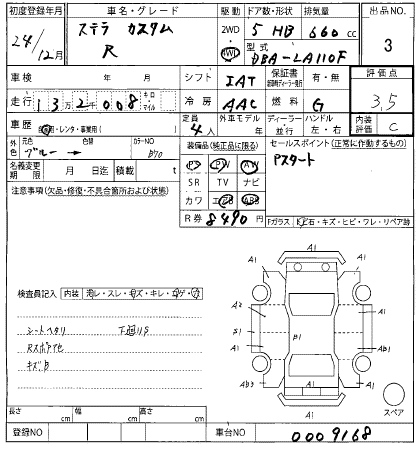 初度登録年月 車名・グレード 駆動 ドア数・形状 排気量 出品NO.
24/12月 ステラ カスタム R 2WD 4WD 5 HB 660 cc 3
型式 DBA-LA110F
車検 年 月 シフト IAT 保証書 有・無 評価点
走行 132,008 キロ マイル 冷房 AAC 燃料 G 3.5
車歴 自家用・レンタ・事業用( ) 定員 4人 外車モデル 年 ディーラー 並行 ハンドル 左・右 内装評価 C
外色 元色 ブルー → 色替 カラーNO B70 装備品(純正品に限る) セールスポイント(正常に作動するもの)
PS PW AW Pスタート
名義変更期限 月 日迄 積載 t SR TV ナビ
注意事項(欠品・修復・不具合箇所および状態) カワ エアB ABS
R券 8490円 Fガラス 石・キズ・ヒビ・ワレ・リペア跡
A1
A1 A1
検査員記入 内装
A2
シートヘタリ 下廻りS S1 B1 A1
A1 AB1
キズB
AB3 A1
A1
スペア
長さ cm 幅 cm 高さ cm
登録NO 車台NO 0009168